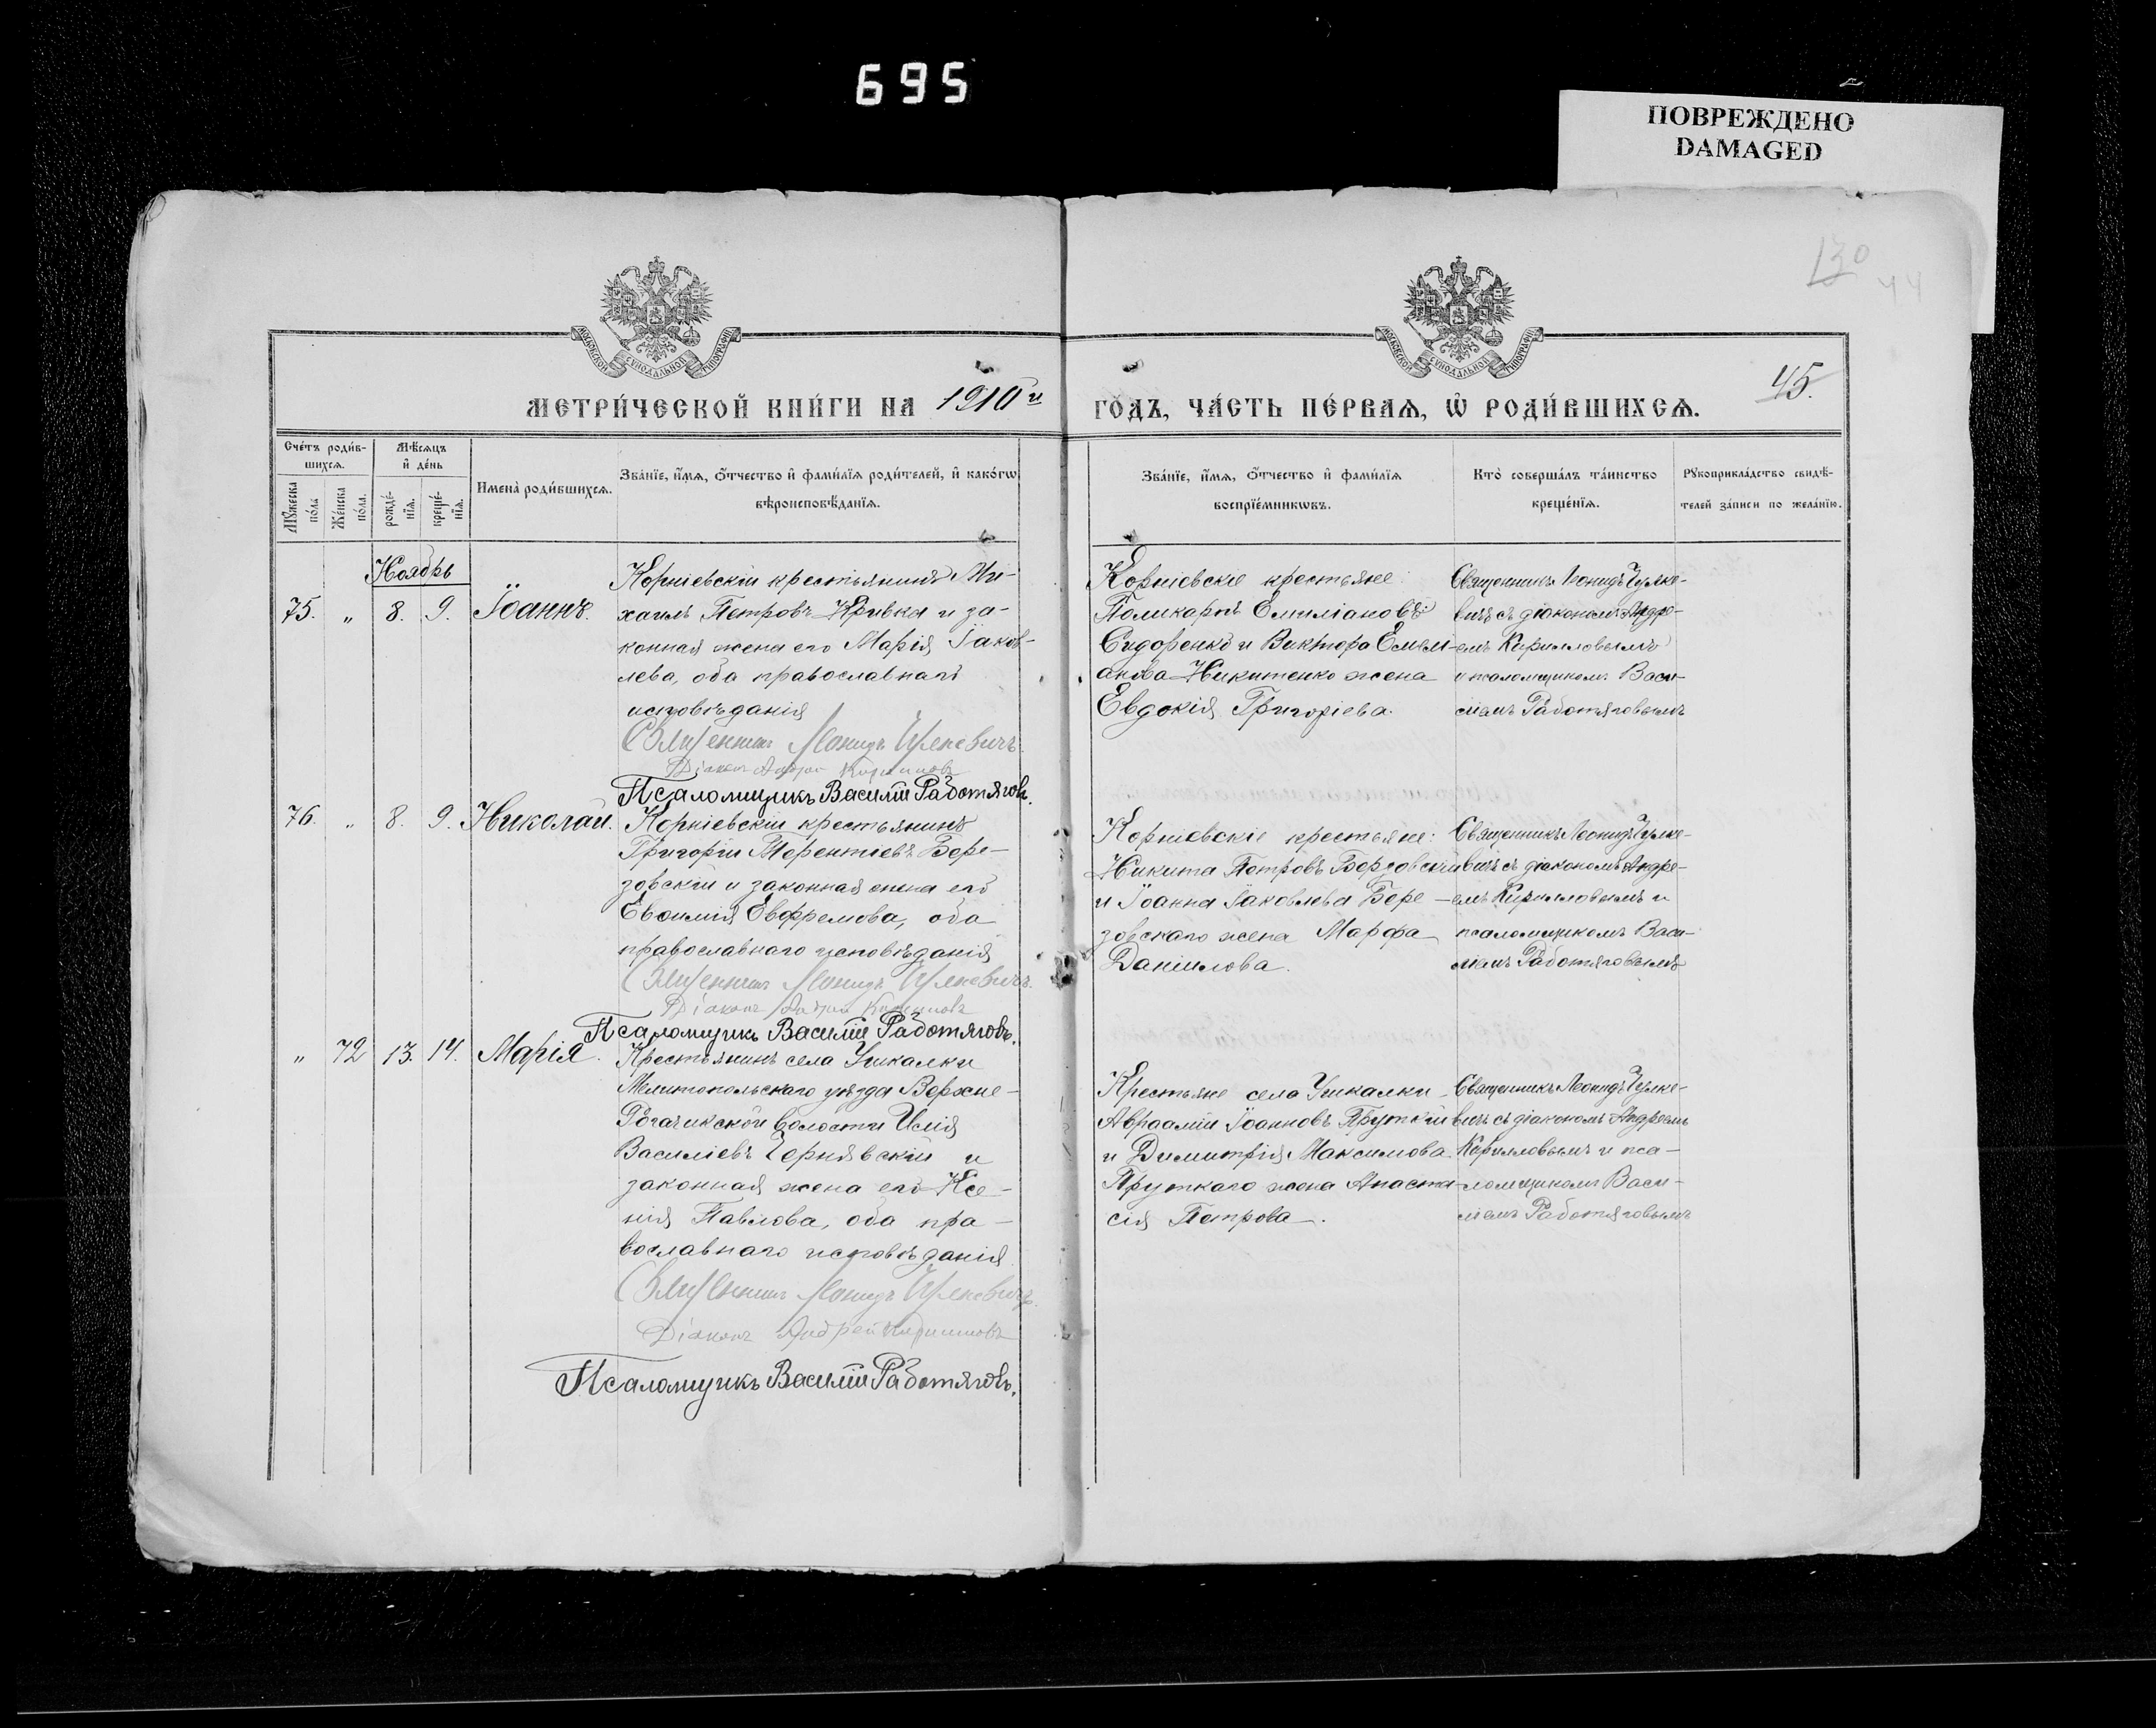 695
ПОВРЕЖДЕНО
DAMAGED
130
44
МОСКОВСКОЙ СУНОДАЛЬНОЙ ТИПОГРАФІИ
МОСКОВСКОЙ СУНОДАЛЬНОЙ ТИПОГРАФІИ
45.
МЕТРИ́ЧЕСКОЙ КНИ́ГИ НА 1910 й ГО́ДЪ, ЧА́СТЬ ПЕ́РВАѦ, Ѡ РОДИ́ВШИХСѦ.
Сче́тъ роди́в-
шихсѧ.
Мꙋ́жеска по́ла
Же́нска по́ла.
Мѣ́сѧцъ
и҆ де́нь
рожде́-
нїѧ.
креще́-
нїѧ.
И҆мена̀ роди́вшихсѧ.
Зва́нїе, и҆́мѧ, ѻ҆́тчество и҆ фами́лїѧ роди́телей, и҆ како́гѡ
вѣроисповѣ́данїѧ.
Зва́нїе, и҆́мѧ, ѻ҆́тчество и҆ фами́лїѧ
воспрїе́мникѡвъ.
Кто̀ соверша́лъ та́инство
креще́нїѧ.
Рꙋкоприкла́дство свидѣ́-
телей за́писи по жела́нїю.
Ноябрь
75. „ 8. 9. Іоаннъ.
Корніевскій крестьянинъ Ми-
хаилъ Петровъ Кривка и за-
конная жена его Марія Іаков-
лева, оба православнаго
исповѣданія
Священникъ Леонидъ
Діаконъ Андрей Кирилловъ
Псаломщикъ Василій Работяговъ.
Корніевскіе крестьяне:
Поликарпъ Емиліановъ
Сидоренко и Виктора Емили-
анова Никитенко жена
Евдокія Григоріева.
Священникъ Леонидъ
вичъ съ діакономъ Андре-
емъ Кирилловымъ
и псаломщикомъ Васи-
ліемъ Работяговымъ
76. „ 8. 9. Николай.
Корніевскій крестьянинъ
Григорій Терентіевъ Бере-
зовскій и законная жена его
Евѳимія Евфремова, оба
православнаго исповѣданія
Священникъ Леонидъ
Діаконъ Андрей Кирилловъ
Псаломщикъ Василій Работяговъ.
Корніевскіе крестьяне:
Никита Петровъ Березовскій
и Іоанна Іаковлева Бере-
зовскаго жена Марфа
Даніилова.
Священникъ Леонидъ
вичъ съ діакономъ Андре-
емъ Кирилловымъ и
псаломщикомъ Васи-
ліемъ Работяговымъ
„ 72 13. 14. Марія.
Крестьянинъ села Ушкалки
Мелитопольскаго уѣзда Верхне-
Рогачикской волости Исаія
Василіевъ Чернявскій и
законная жена его Ксе-
нія Павлова, оба пра-
вославнаго исповѣданія
Священникъ Леонидъ
Діаконъ Андрей Кирилловъ
Псаломщикъ Василій Работяговъ.
Крестьяне села Ушкалки
Авраамій Іоанновъ Пруткій
и Димитрія Максимова
Пруткаго жена Анаста-
сія Петрова.
Священникъ Леонидъ
вичъ съ діакономъ Андреемъ
Кирилловымъ и пса-
ломщикомъ Васи-
ліемъ Работяговымъ